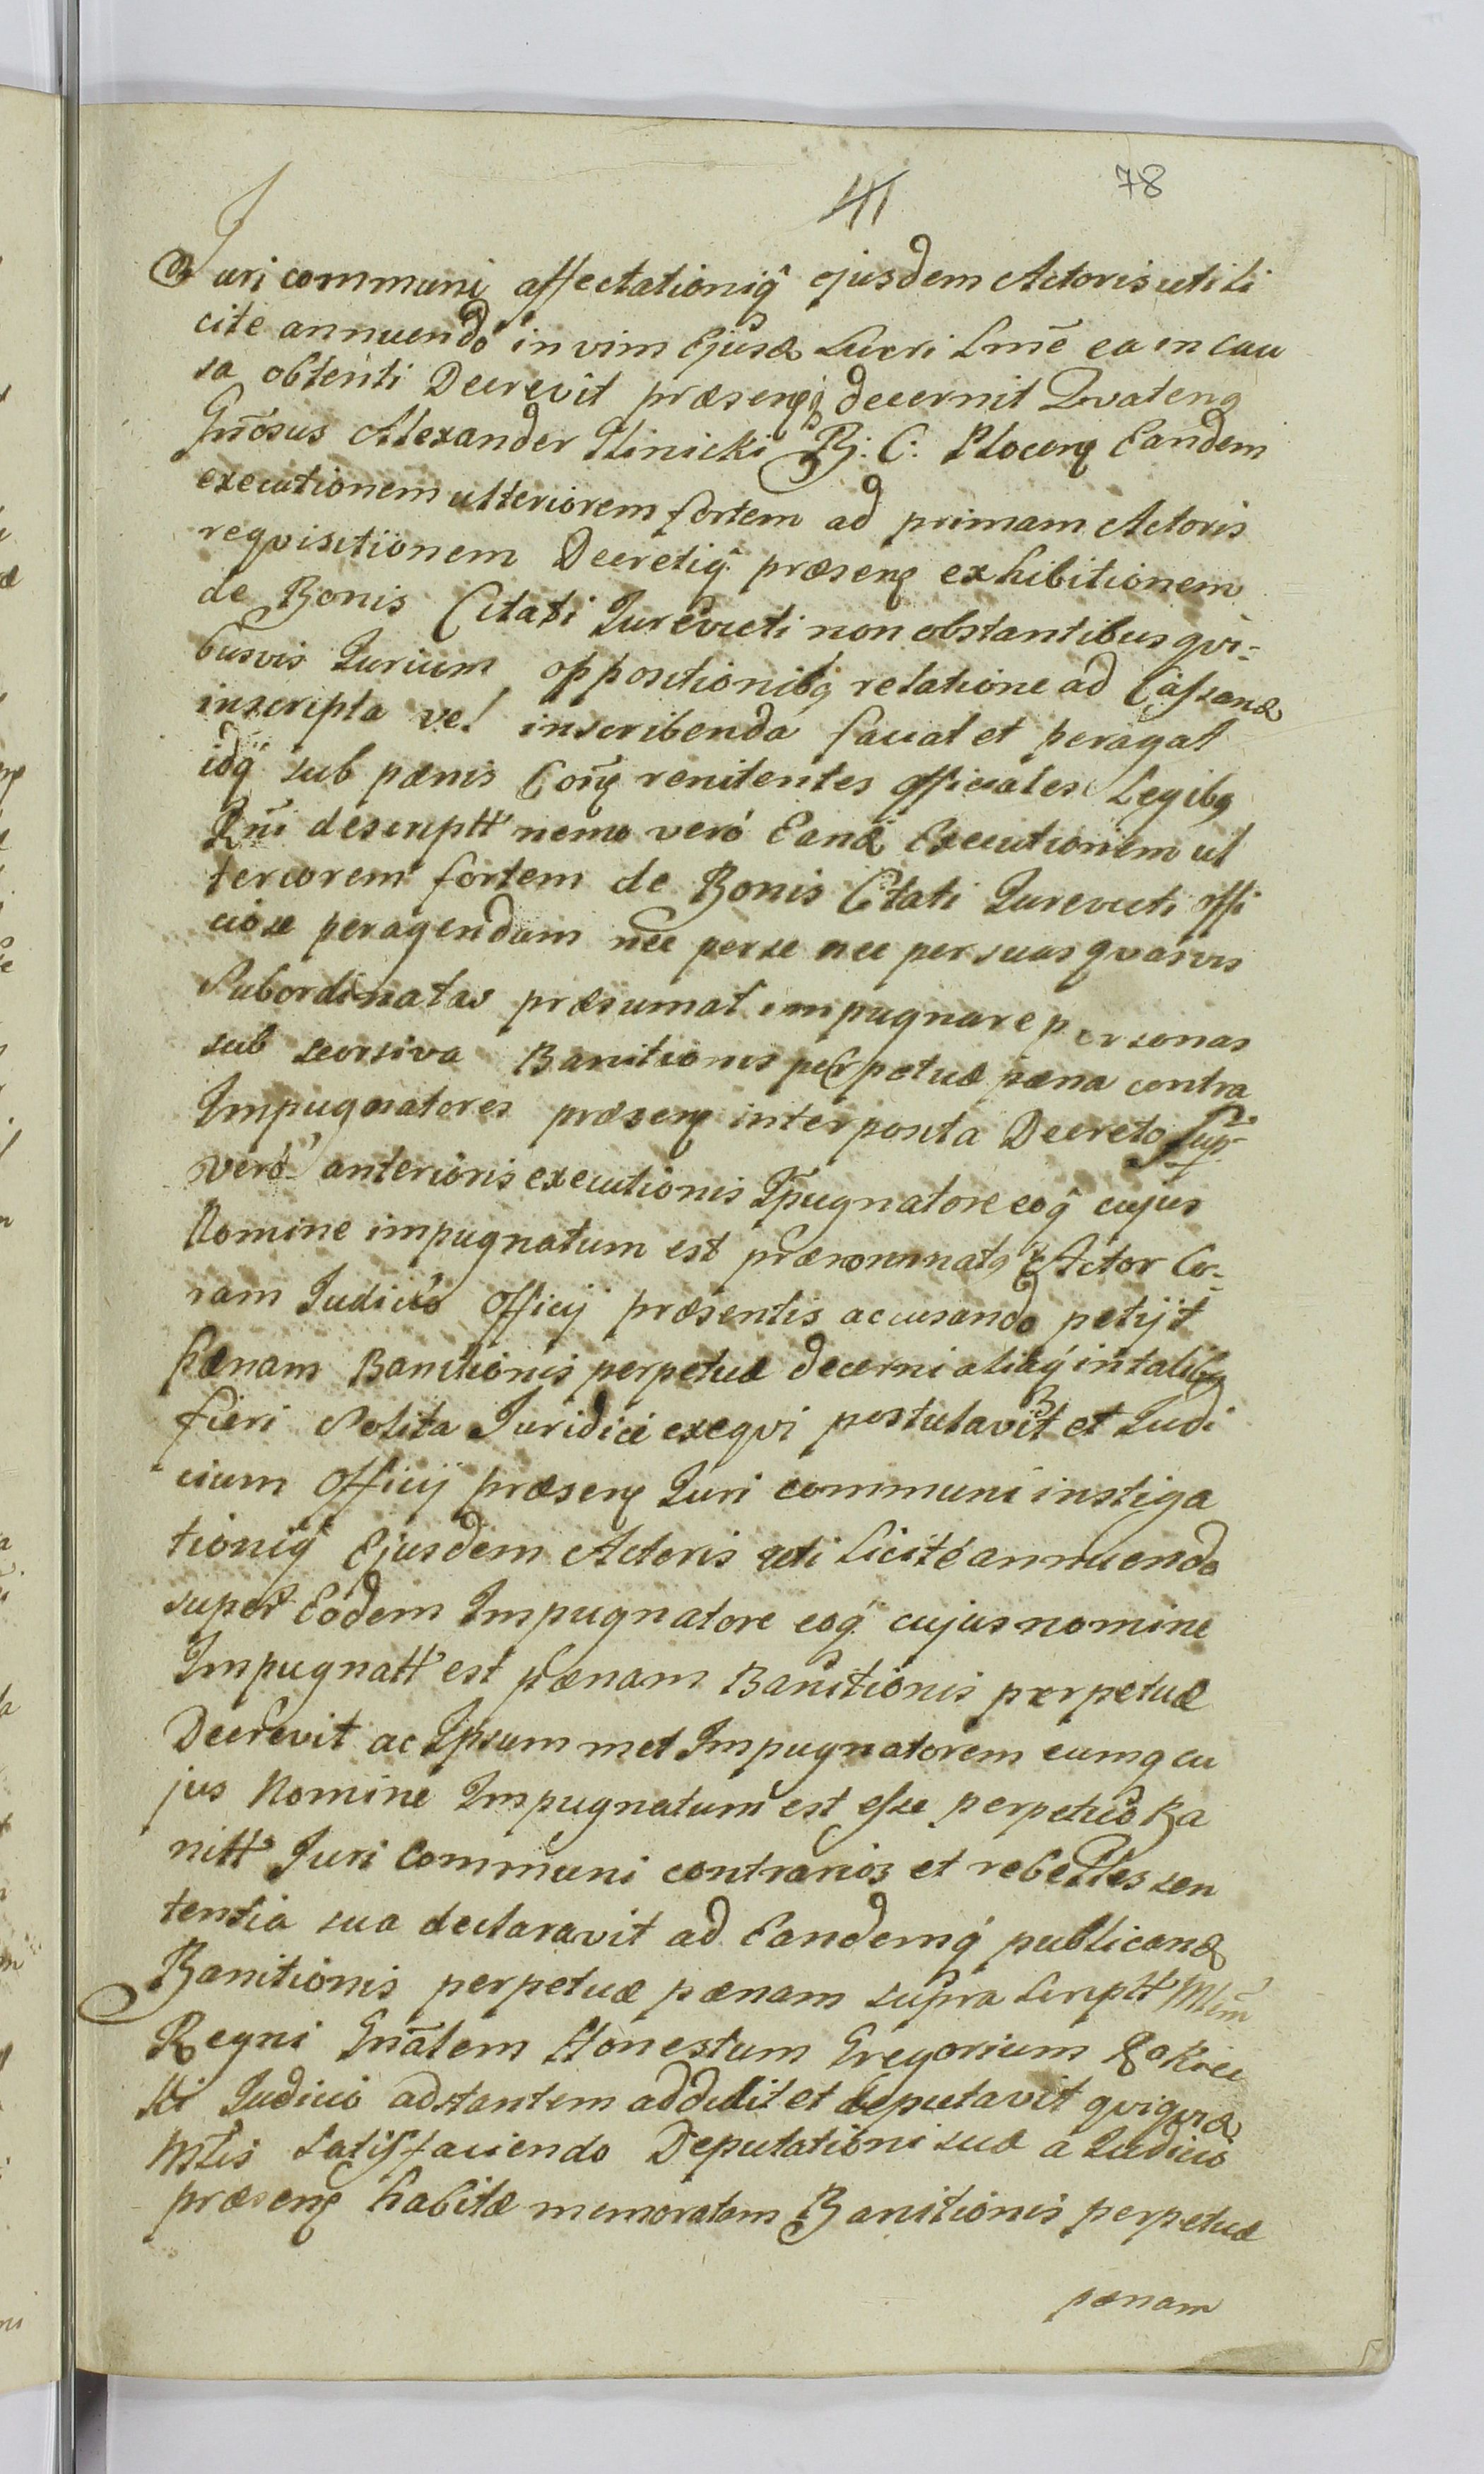 41 78
Juri communi affectationiq̃ ejusdem Actoris uti li
cite annuendo in vim Ejusd Lucri Lmẽ ea in cau
sa obtenti Decrevit præsenqꝫ decernit Qvateng
Gñosus Alexander Ilinicki B: C: Plocenꝫ Eandem
executionem ulteriorem fortem ad primam Actoris
reqvisitionem Decretiq̃ præsenꝫ exhibitionem
de Bonis Citati Jurevicti non obstantibus qvi-
busvis Jurium oppositionibꝫ relatione ad Cassand
inscripta vel inscribenda faciat et peragat
idq̃ sub pænis Conꝫ renitentes officiales Legibꝫ
Rñi descriptt nemo vero Eand Executionem ul
teriorem fortem de Bonis Citati Jurevicti offi
ciose peragendam nec per se nec per suas qvasvis
Subordinatas præsumat impugnare personas
sub seorsiva Banitionis perpetuæ pæna contra
Impugnatores præsenꝫ interposita Decreto Sup
vero anterioris executionis Ipugnatore eoq̃ cujus
Nomine impugnatum est prænominatꝫ Actor Co-
ram Judicio Officij præsentis accusando petijt
Pænam Banitionis perpetuæ decerni aliaq̃ in talibꝫ
fieri Solita Juridice exeqvi postulavit et Judi
cium Officij præsenꝫ Juri communi instiga
tioniq̃ Ejusdem Actoris uti Licitè annuendo
super Eodem Impugnatore eoq̃ cujus nomine
Impugnatt est pænam Banitionis perpetuæ
Decrevit ac Ipsum met Impugnatorem eumq cu
jus Nomine Impugnatum est esse perpetuo Ba
nitt Juri Communi contrarios et rebelles sen
tentia sua declaravit ad Eandemq̃ publicand
Banitionis perpetuæ pænam supra scriptt Mlem̃
Regni Gnãlem Honestum Gregorium
ki Judicio adstantem addidit et deputavit qviqvid
Mtis satisfaciendo Deputationi suæ a Judicio
præsenꝫ habitæ memoratam Banitionis perpetuæ
pænam